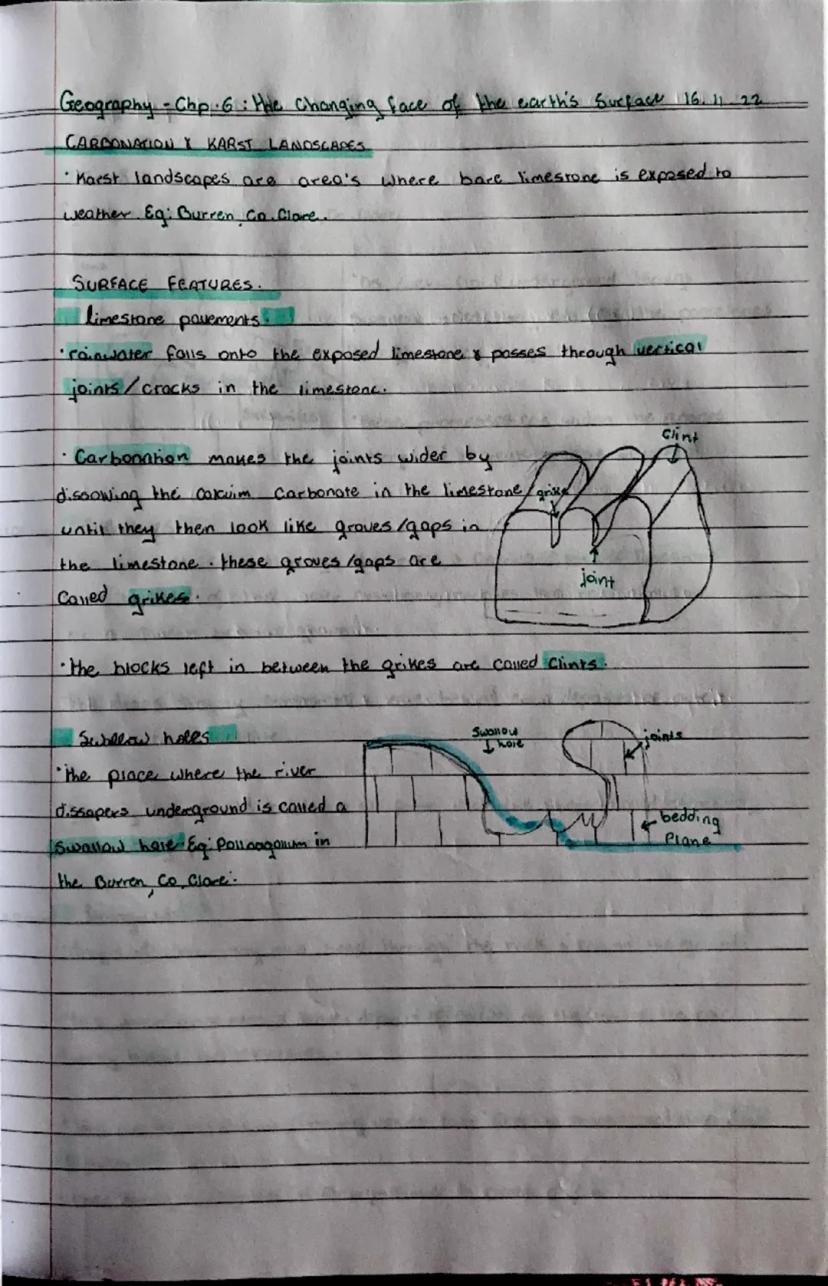 Geography - Chp. 6 : the changing face of the earth's Surface 16. 11. 22
CARBONATION & KARST LANDSCAPES
· Karst landscapes are area's where bare limestone is exposed to
weather. Eg: Burren, Co. Clare.
SURFACE FEATURES.
limestone pavements.
· rainwater falls onto the exposed limestone & passes through vertical
joints/cracks in the limestone.
· Carbonation makes the joints wider by
dissolving the calcuim carbonate in the limestone
until they then look like groves/gaps in
the limestone. these groves/gaps are
called grikes.
Clint
grike
joint
· the blocks left in between the grikes are called Clints.
Swallow holes
· the place where the river
dissapers underground is called a
swallow hole Eg: Pollnagollum in
the Burren, Co, Clare.
Swallow
hole
joints
bedding
Plane